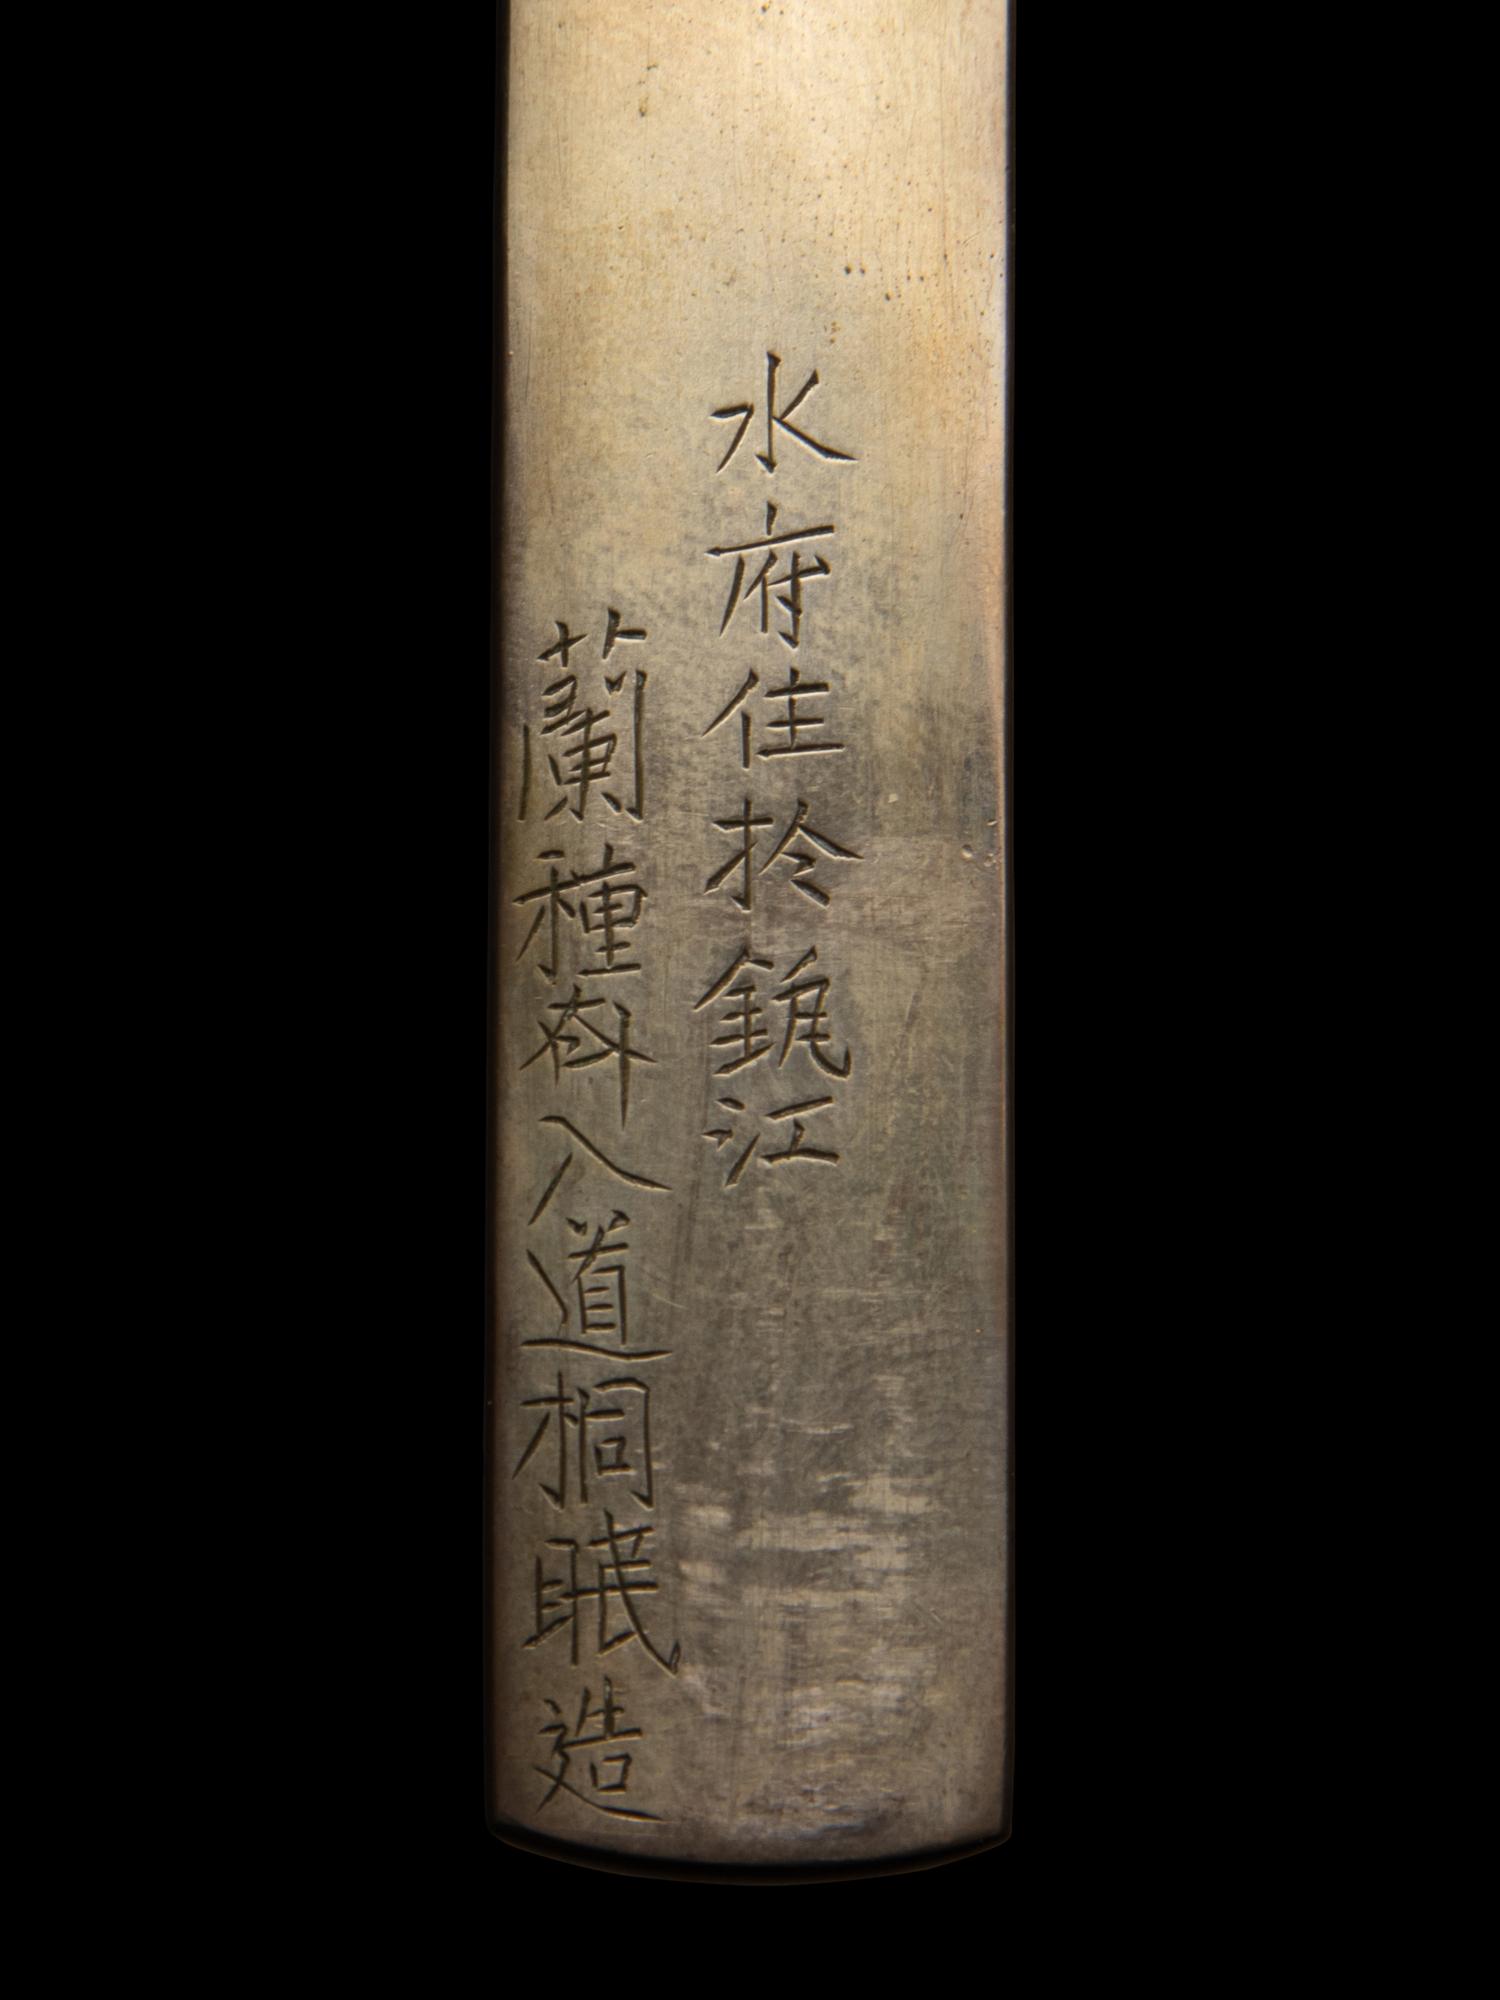 水府住於銚江
蘭種斎入道桐眠造